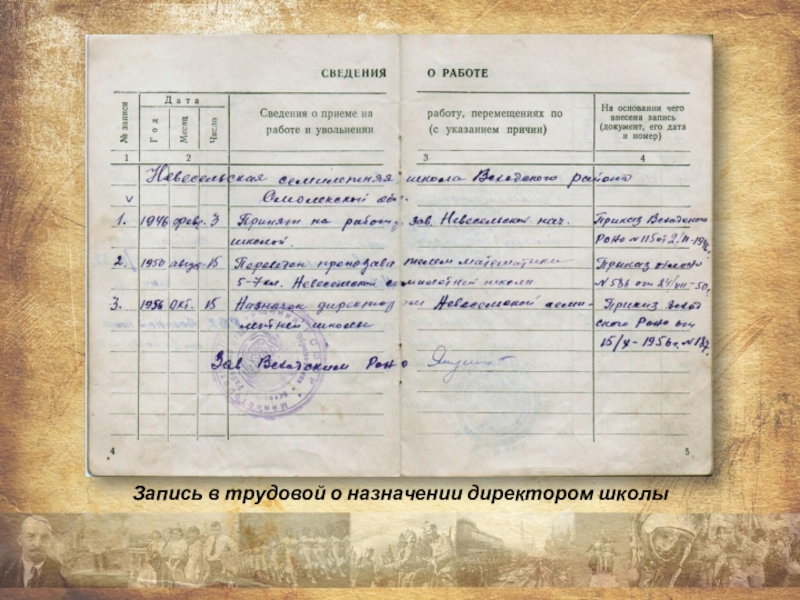 СВЕДЕНИЯ О РАБОТЕ
№ записи
Дата
Год
Месяц
Число
Сведения о приеме на работу, перемещениях по
работе и увольнении (с указанием причин)
На основании чего
внесена запись
(документ, его дата
и номер)
1 2 3 4
Невесельская семилетняя школа района
Смоленской обл.
1. 1946 февр. 3 Принят на работу зав. Невесельской нач.
школой.
Приказ
Роно № 115 от
2. 1950 август 15 Переведен преподавателем математики
5-7 кл. Невесельской семилетней школы
Приказ
№ 586 от
3. 1956 окт. 15 Назначен директором Невесельской семи-
летней школы
Приказ
ского Роно от
15/X-1956г. № 187.
Зав Роно
4 5
Запись в трудовой о назначении директором школы